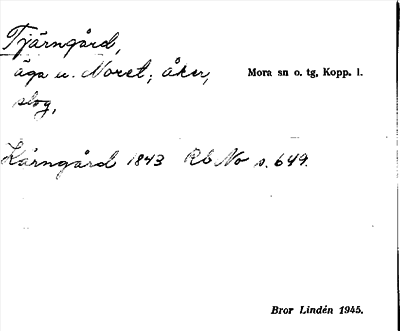 Tjärngård,
äga u. Noret; åker,
Mora sn o. tg, Kopp. l.
slog,
Kärngård 1843 RS No s. 649.
Bror Lindén 1945.